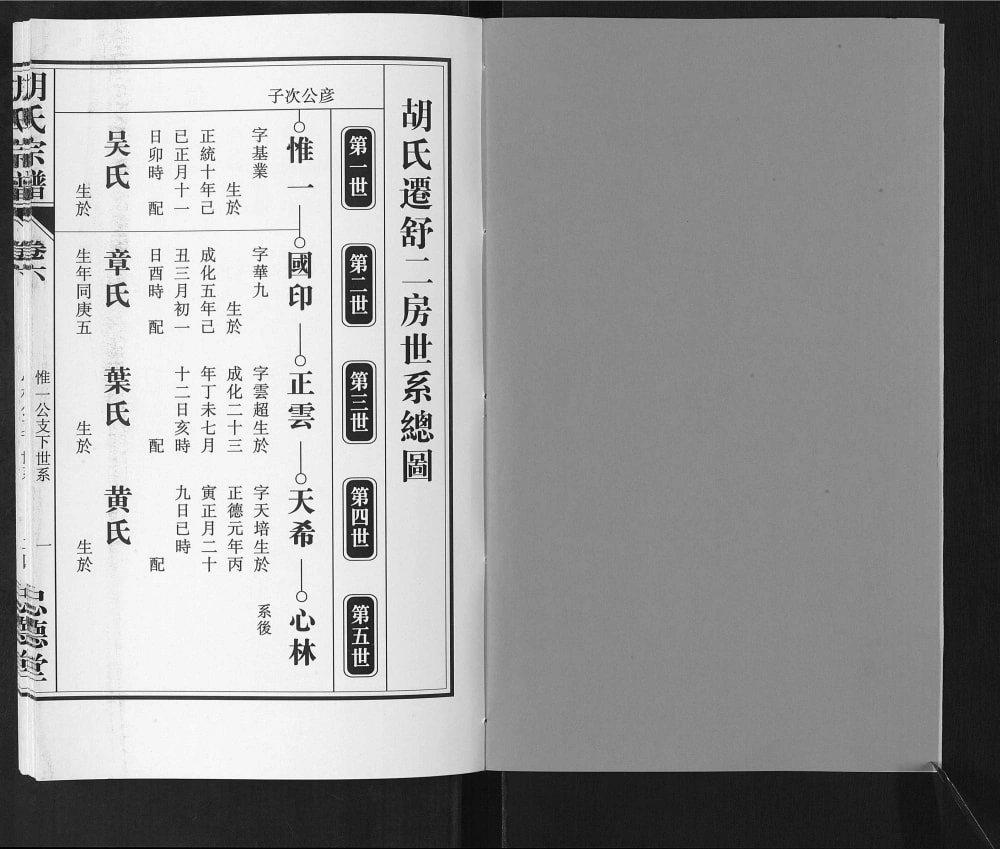 胡氏遷舒二房世系總圖
第一世
第二世
第三世
第四世
第五世
子次公彦
惟一
國印
正雲
天希
心林
字基業
生於
正統十年己
巳正月十一
日卯時 配
吴氏
生於
字華九
生於
成化五年己
丑三月初一
日酉時 配
章氏
生年同庚五
字雲超生於
成化二十三
年丁未七月
十二日亥時
配
葉氏
生於
字天培生於
正德元年丙
寅正月二十
九日巳時
配
黄氏
生於
系後
胡氏宗譜
卷六
惟一公支下世系
一
忠德堂